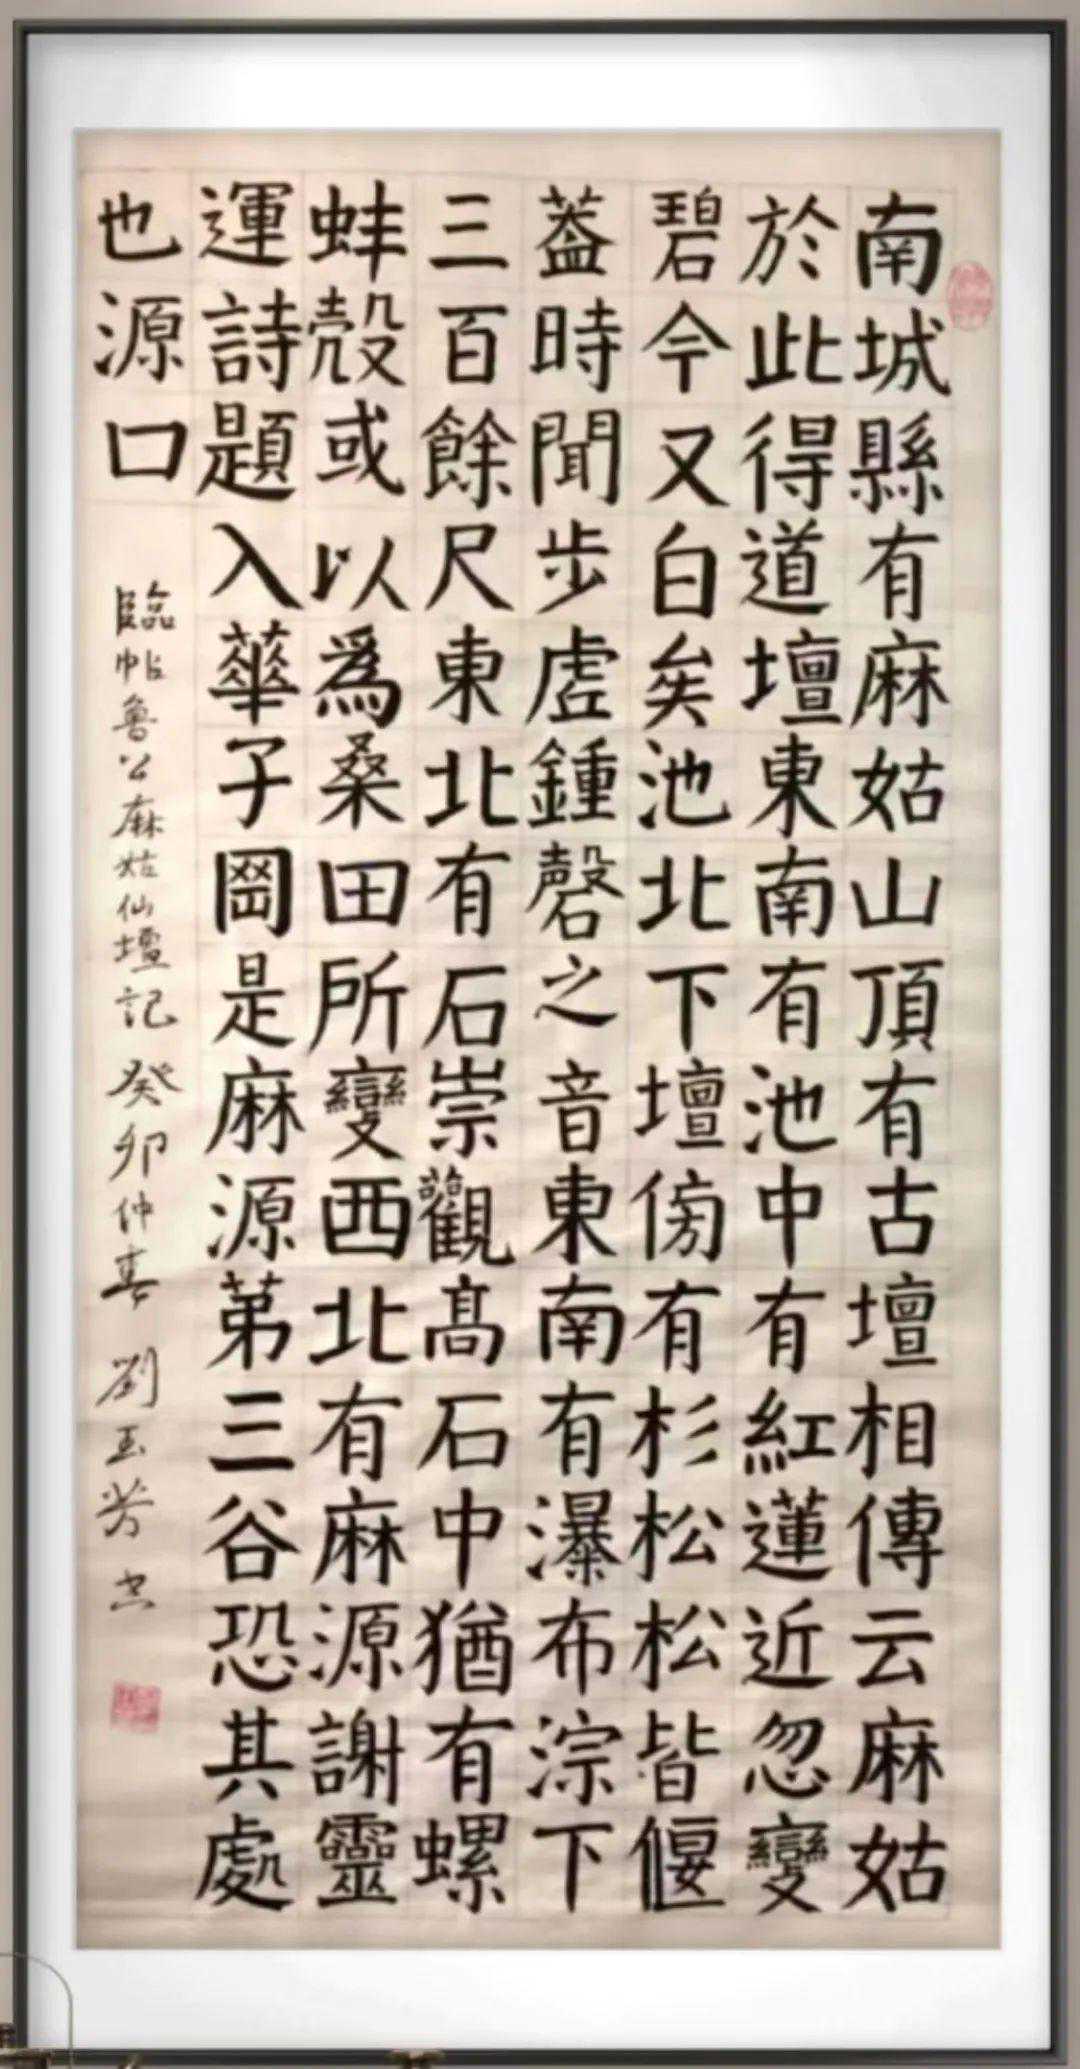 南城縣有麻姑山頂有古壇相傳云麻姑
於此得道壇東南有池中有紅蓮近忽變
碧今又白矣池北下壇傍有杉松松皆偃
蓋時聞步虛鍾磬之音東南有瀑布淙下
三百餘尺東北有石崇觀高石中猶有螺
蚌殼或以為桑田所變西北有麻源謝靈
運詩題入華子岡是麻源第三谷恐其處
也源口
臨帖魯公麻姑仙壇記 癸卯仲春 劉玉芳書